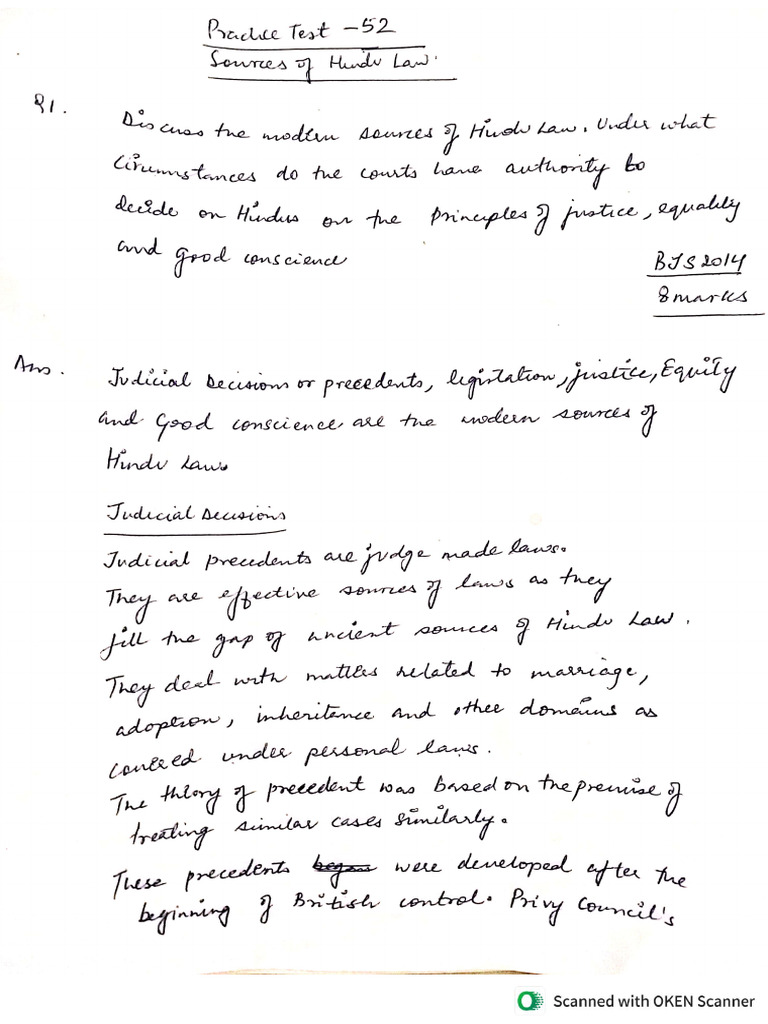 Practice Test - 52
Sources of Hindu Law.
Q1.
Discuss the modern sources of Hindu Law. Under what
circumstances do the courts have authority to
decide on Hindus on the principles of justice, equality
and good conscience
BJS 2014
8 marks
Ans.
Judicial Decisions or precedents, legistation, justice, Equity
and Good conscience are the modern sources of
Hindu Law.
Judicial Decisions
Judicial precedents are judge made laws.
They are effective sources of laws as they
fill the gap of ancient sources of Hindu Law.
They deal with matters related to marriage,
adoption, inheritence and other domains as
covered under personal laws.
The theory of precedent was based on the premise of
treating similar cases similarly.
These precedents began were developed after the
beginning of British control. Privy Council's
Scanned with OKEN Scanner